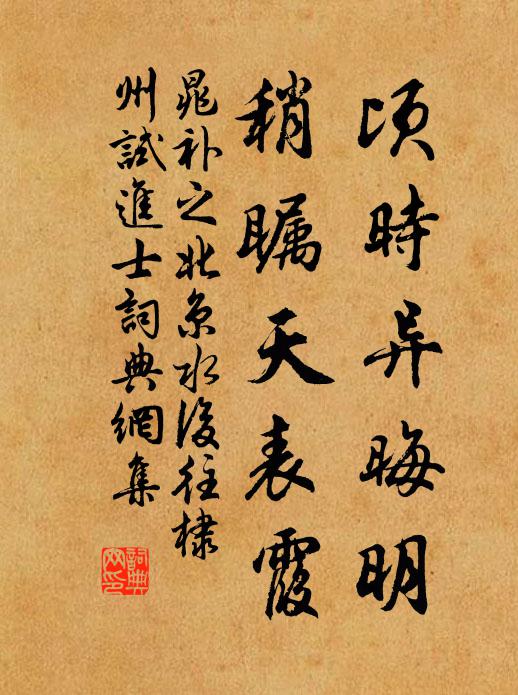 頃時异晦明
稍瞩天表霞
晁补之北京水後往棣
州試進士詞典網集
詞典網印